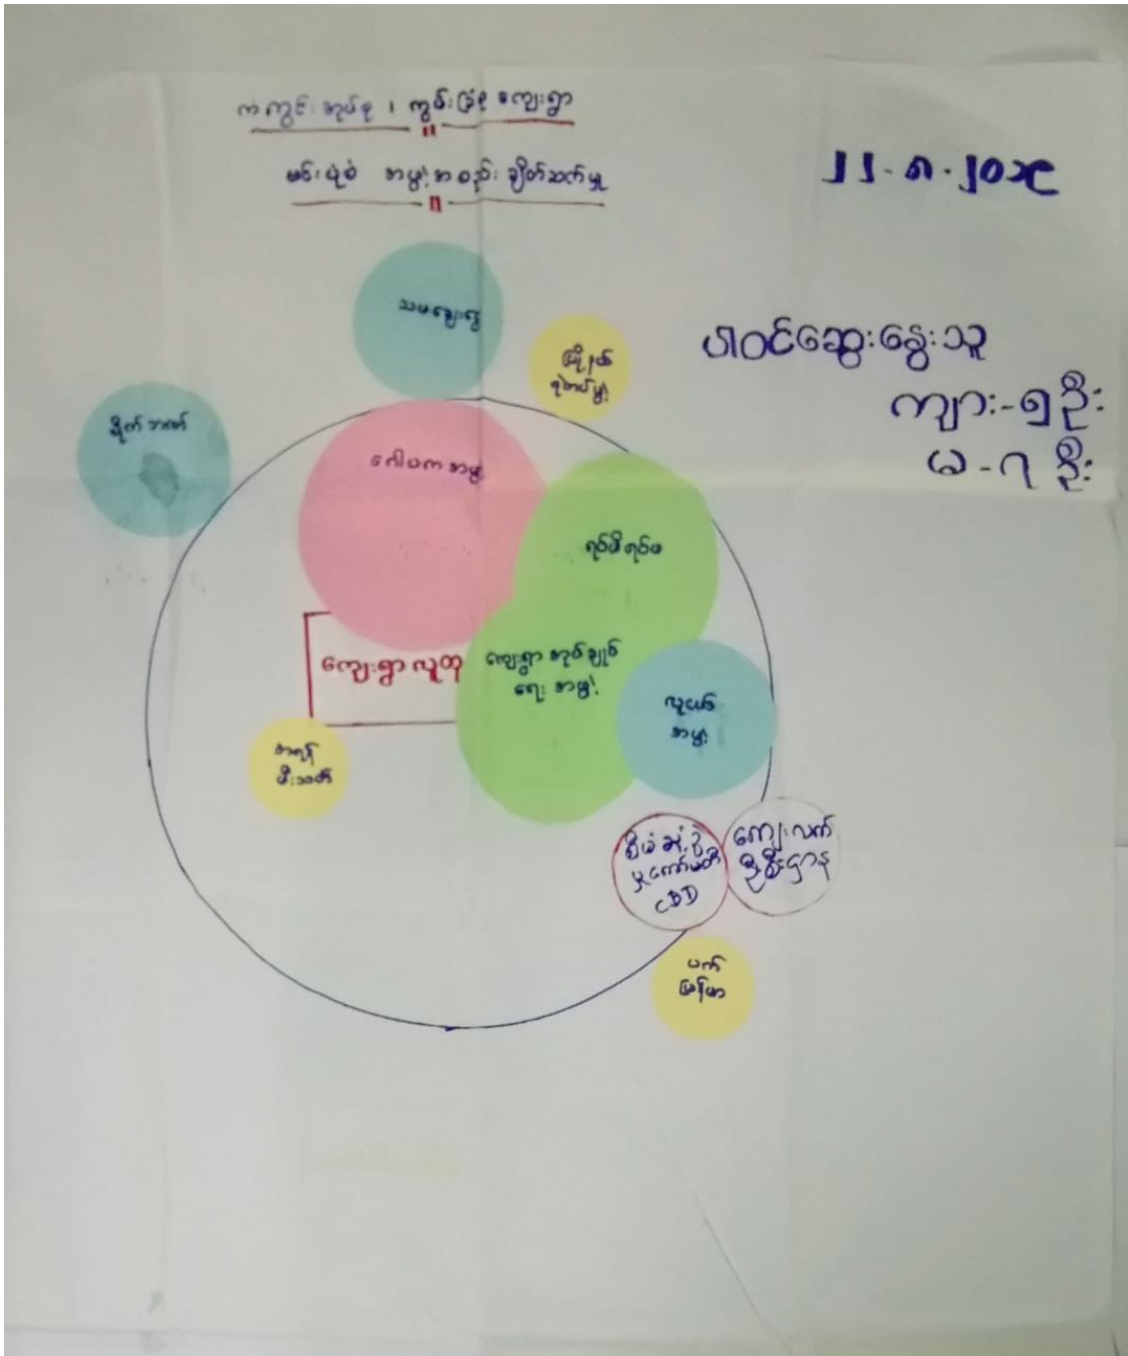 ကံကွင်းအုပ်စု၊ ကွမ်းခြံစု ကျေးရွာ
မင်းပုံစံ အဖွဲ့အစည်း ချိတ်ဆက်မှု
၂၂.၈.၂၀၁၉
ပါဝင်ဆွေးနွေးသူ
ကျား-၅ဦး
မ-၇ဦး
သမဆွေးရွေ
မြို့နယ်
စိုက်ဘဏ်
ဂေါပကအဖွဲ့
ရပ်မိရပ်ဖ
ကျေးရွာလူထု
ကျေးရွာအုပ်ချုပ်
ရေးအဖွဲ့
လူငယ်
အဖွဲ့
အရန်
မီးသတ်
စီမံခန့်ခွဲ
မှုကော်မတီ
CDD
ကျေးလက်
ဦးစီးဌာန
ပက်
မြန်မာ